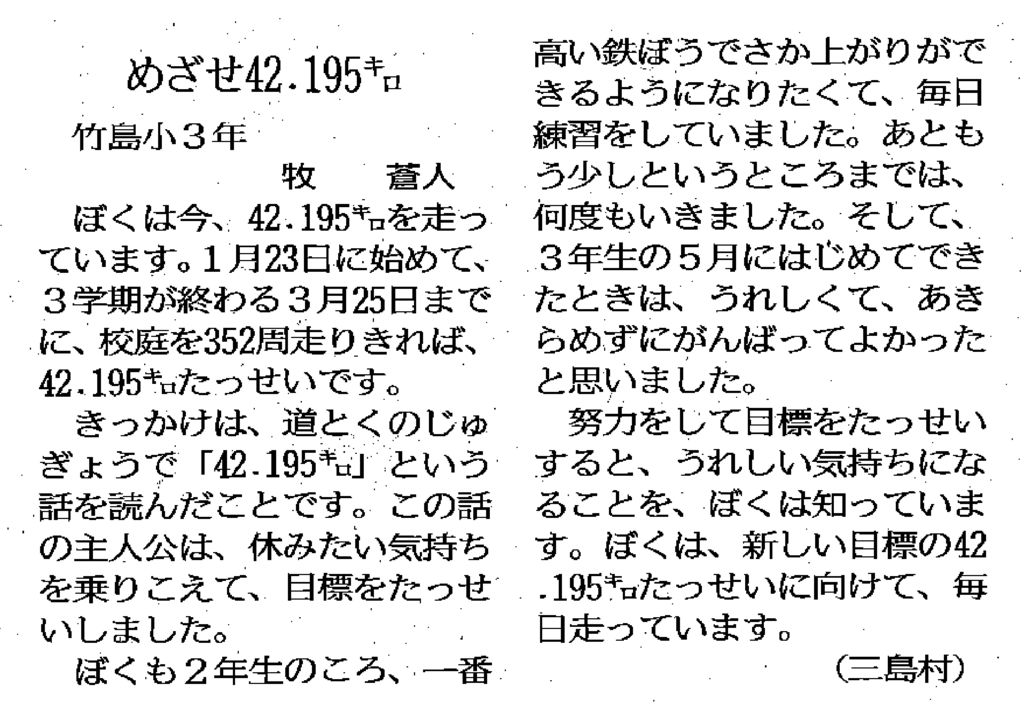 めざせ42.195㌔
竹島小3年
牧　蒼人
ぼくは今、42.195㌔を走っ
ています。1月23日に始めて、
3学期が終わる3月25日まで
に、校庭を352周走りきれば、
42.195㌔たっせいです。
きっかけは、道とくのじゅ
ぎょうで「42.195㌔」という
話を読んだことです。この話
の主人公は、休みたい気持ち
を乗りこえて、目標をたっせ
いしました。
ぼくも2年生のころ、一番
高い鉄ぼうでさか上がりがで
きるようになりたくて、毎日
練習をしていました。あとも
う少しというところまでは、
何度もいきました。そして、
3年生の5月にはじめてでき
たときは、うれしくて、あき
らめずにがんばってよかった
と思いました。
努力をして目標をたっせい
すると、うれしい気持ちにな
ることを、ぼくは知っていま
す。ぼくは、新しい目標の42
.195㌔たっせいに向けて、毎
日走っています。
（三島村）